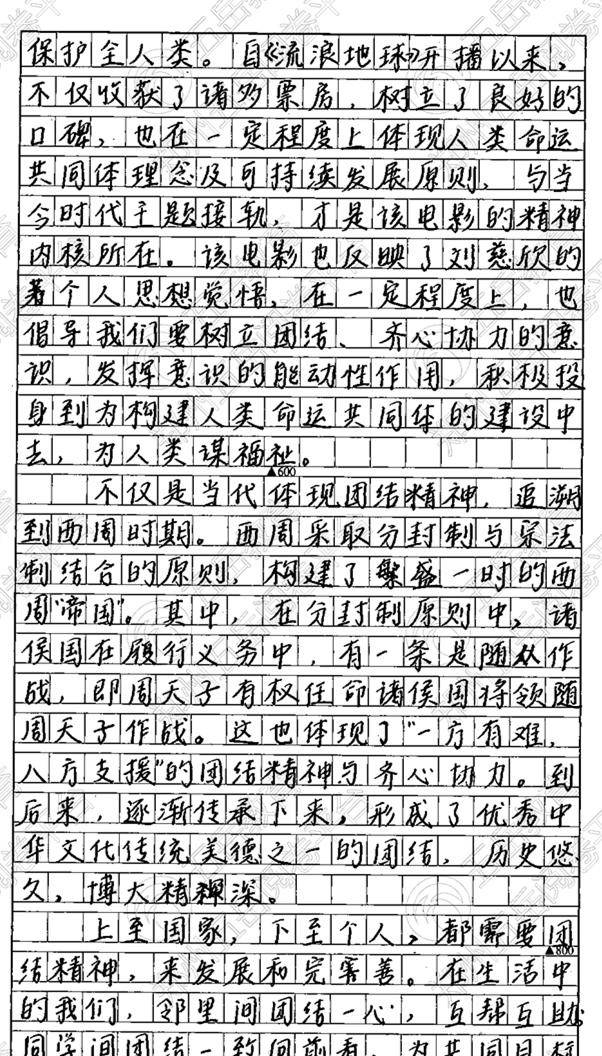 保护全人类。自《流浪地球》开播以来，
不仅收获了诸多票房，树立了良好的
口碑，也在一定程度上体现人类命运
共同体理念及可持续发展原则，与当
今时代主题接轨，才是该电影的精神
内核所在。该电影也反映了刘慈欣的
着个人思想觉悟，在一定程度上，也
倡导我们要树立团结、齐心协力的意
识，发挥意识的能动性作用，积极投
身到为构建人类命运共同体的建设中
去，为人类谋福祉。
▲600
不仅是当代体现团结精神，追溯
到西周时期。西周采取分封制与宗法
制结合的原则，构建了繁盛一时的西
周“帝国”。其中，在分封制原则中，诸
侯国在履行义务中，有一条是随从作
战，即周天子有权任命诸侯国将领随
周天子作战。这也体现了“一方有难，
八方支援”的团结精神与齐心协力。到
后来，逐渐传承下来，形成了优秀中
华文化传统美德之一的团结，历史悠
久，博大精深。
上至国家，下至个人，都需要团
▲800
结精神，来发展和完善。在生活中
的我们，邻里间团结一心，互帮互助
同学间团结一致向前看，为共同目标